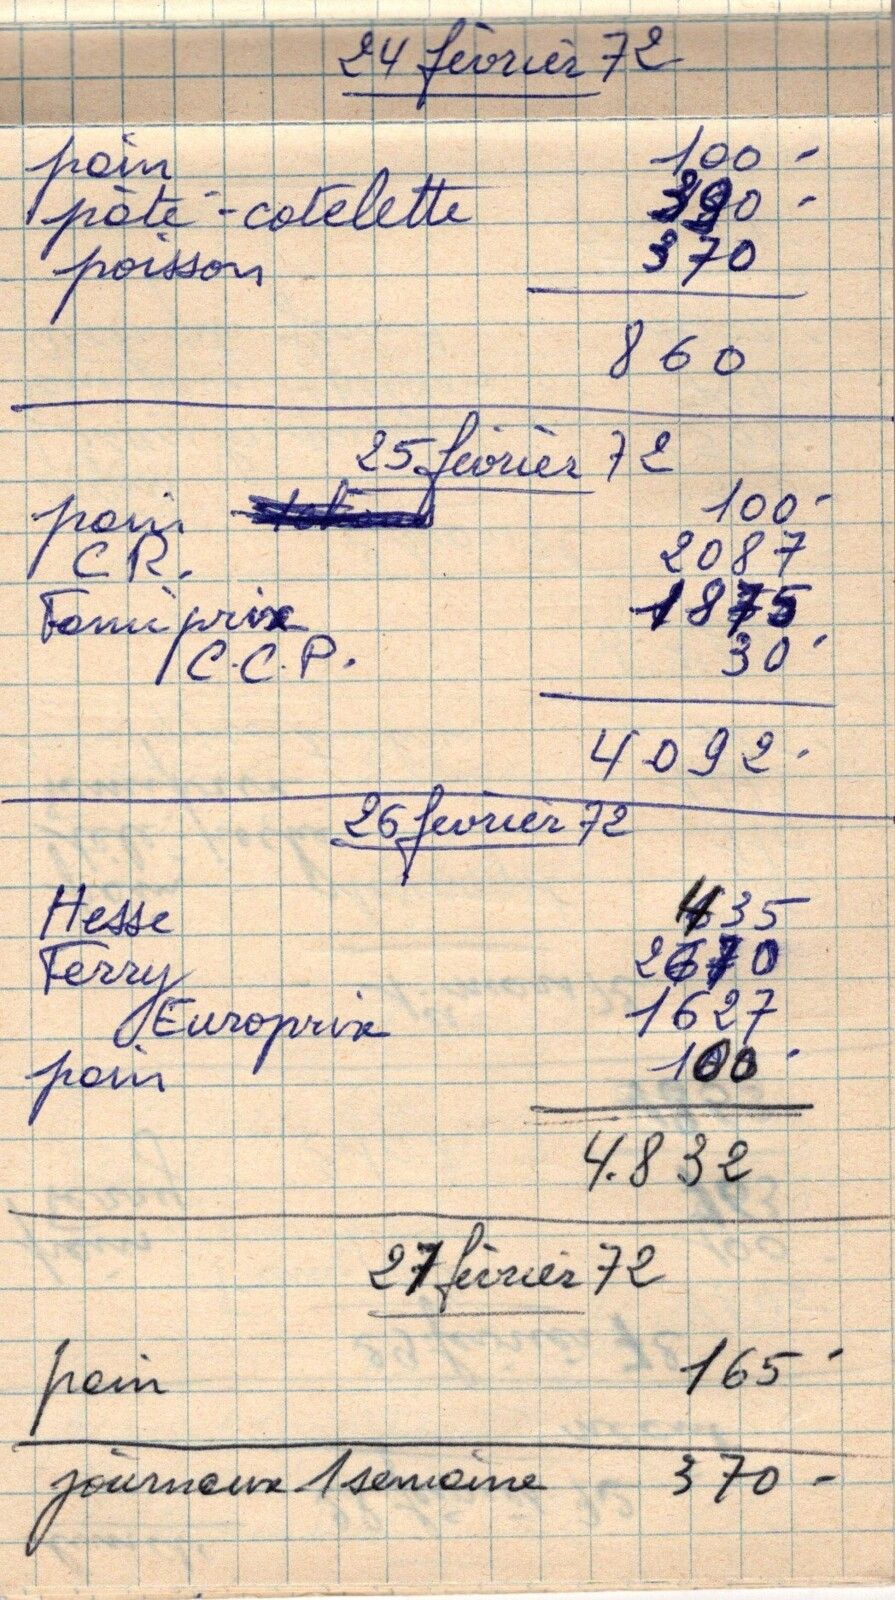 24 février 72
pain 100 -
pâté - cotelette 390 -
poisson 370
860
25 février 72
pain 100 -
C R. 2087
Famiprix 1875
C.C.P. 30 -
4092 -
26 fevrier 72
Hesse 435
Ferry 2670
Europrix 1627
pain 100 -
4.832
27 février 72
pain 165 -
journaux 1 semaine 370 -